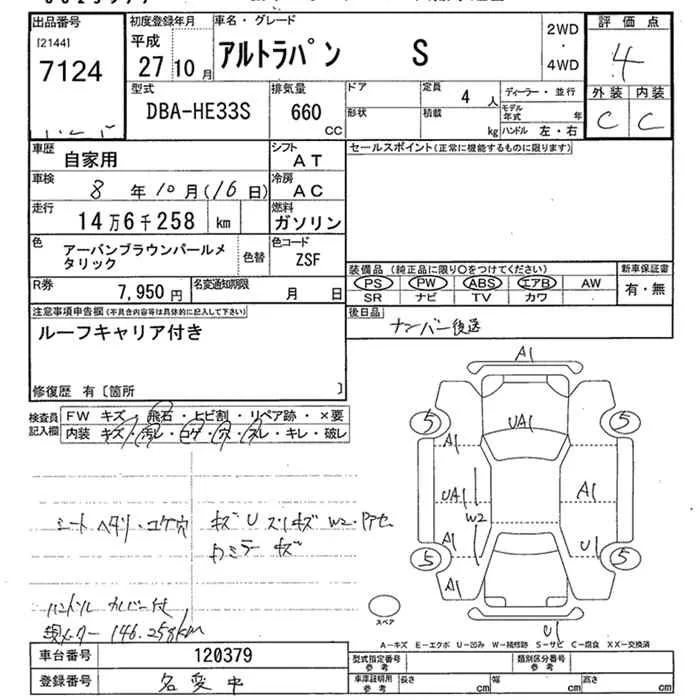 出品番号
[2144]
7124
初度登録年月
平成
27 10 月
車名・グレード
アルトラパン S
2WD
・
4WD
評価点
4
外装 内装
C C
型式
DBA-HE33S
排気量
660
CC
ドア
形状
定員
4 人
積載
kg
ディーラー・並行
モデル年式 年
ハンドル 左・右
車歴
自家用
シフト
AT
セールスポイント(正常に機能するものに限ります)
車検
8 年 10 月 (16 日)
冷房
AC
走行
14万6千258 km
燃料
ガソリン
色
アーバンブラウンパールメ
タリック
色替
色コード
ZSF
装備品 (純正品に限り○をつけてください)
新車保証書
PS PW ABS エアB AW
有・無
SR ナビ TV カワ
R券
7,950 円
名変通知期限
月 日
後日品
ナンバー後送
注意事項申告欄(不具合内容等は具体的に記入して下さい)
ルーフキャリア付き
修復歴 有〔箇所 〕
検査員
記入欄
FW キズ・飛石・ヒビ割・リペア跡・×要
内装 キズ・汚レ・コゲ・穴・スレ・キレ・破レ
シート ヘタリ・コゲ穴
キズ U スリキズ W2・アセ
カミラー キズ
ハンドル カバー付
現メーター 146.258km
A1
5
5
UA1
A1
UA1
A1
W2
A1
U1
5
5
A1
U1
スペア
A-キズ E-エクボ U-凹み W-補修跡 S-サビ C-腐食 XX-交換済
車台番号
120379
登録番号
名変中
型式指定番号
参考
類別区分番号
参考
車庫証明用
参考
長さ cm
幅 cm
高さ cm